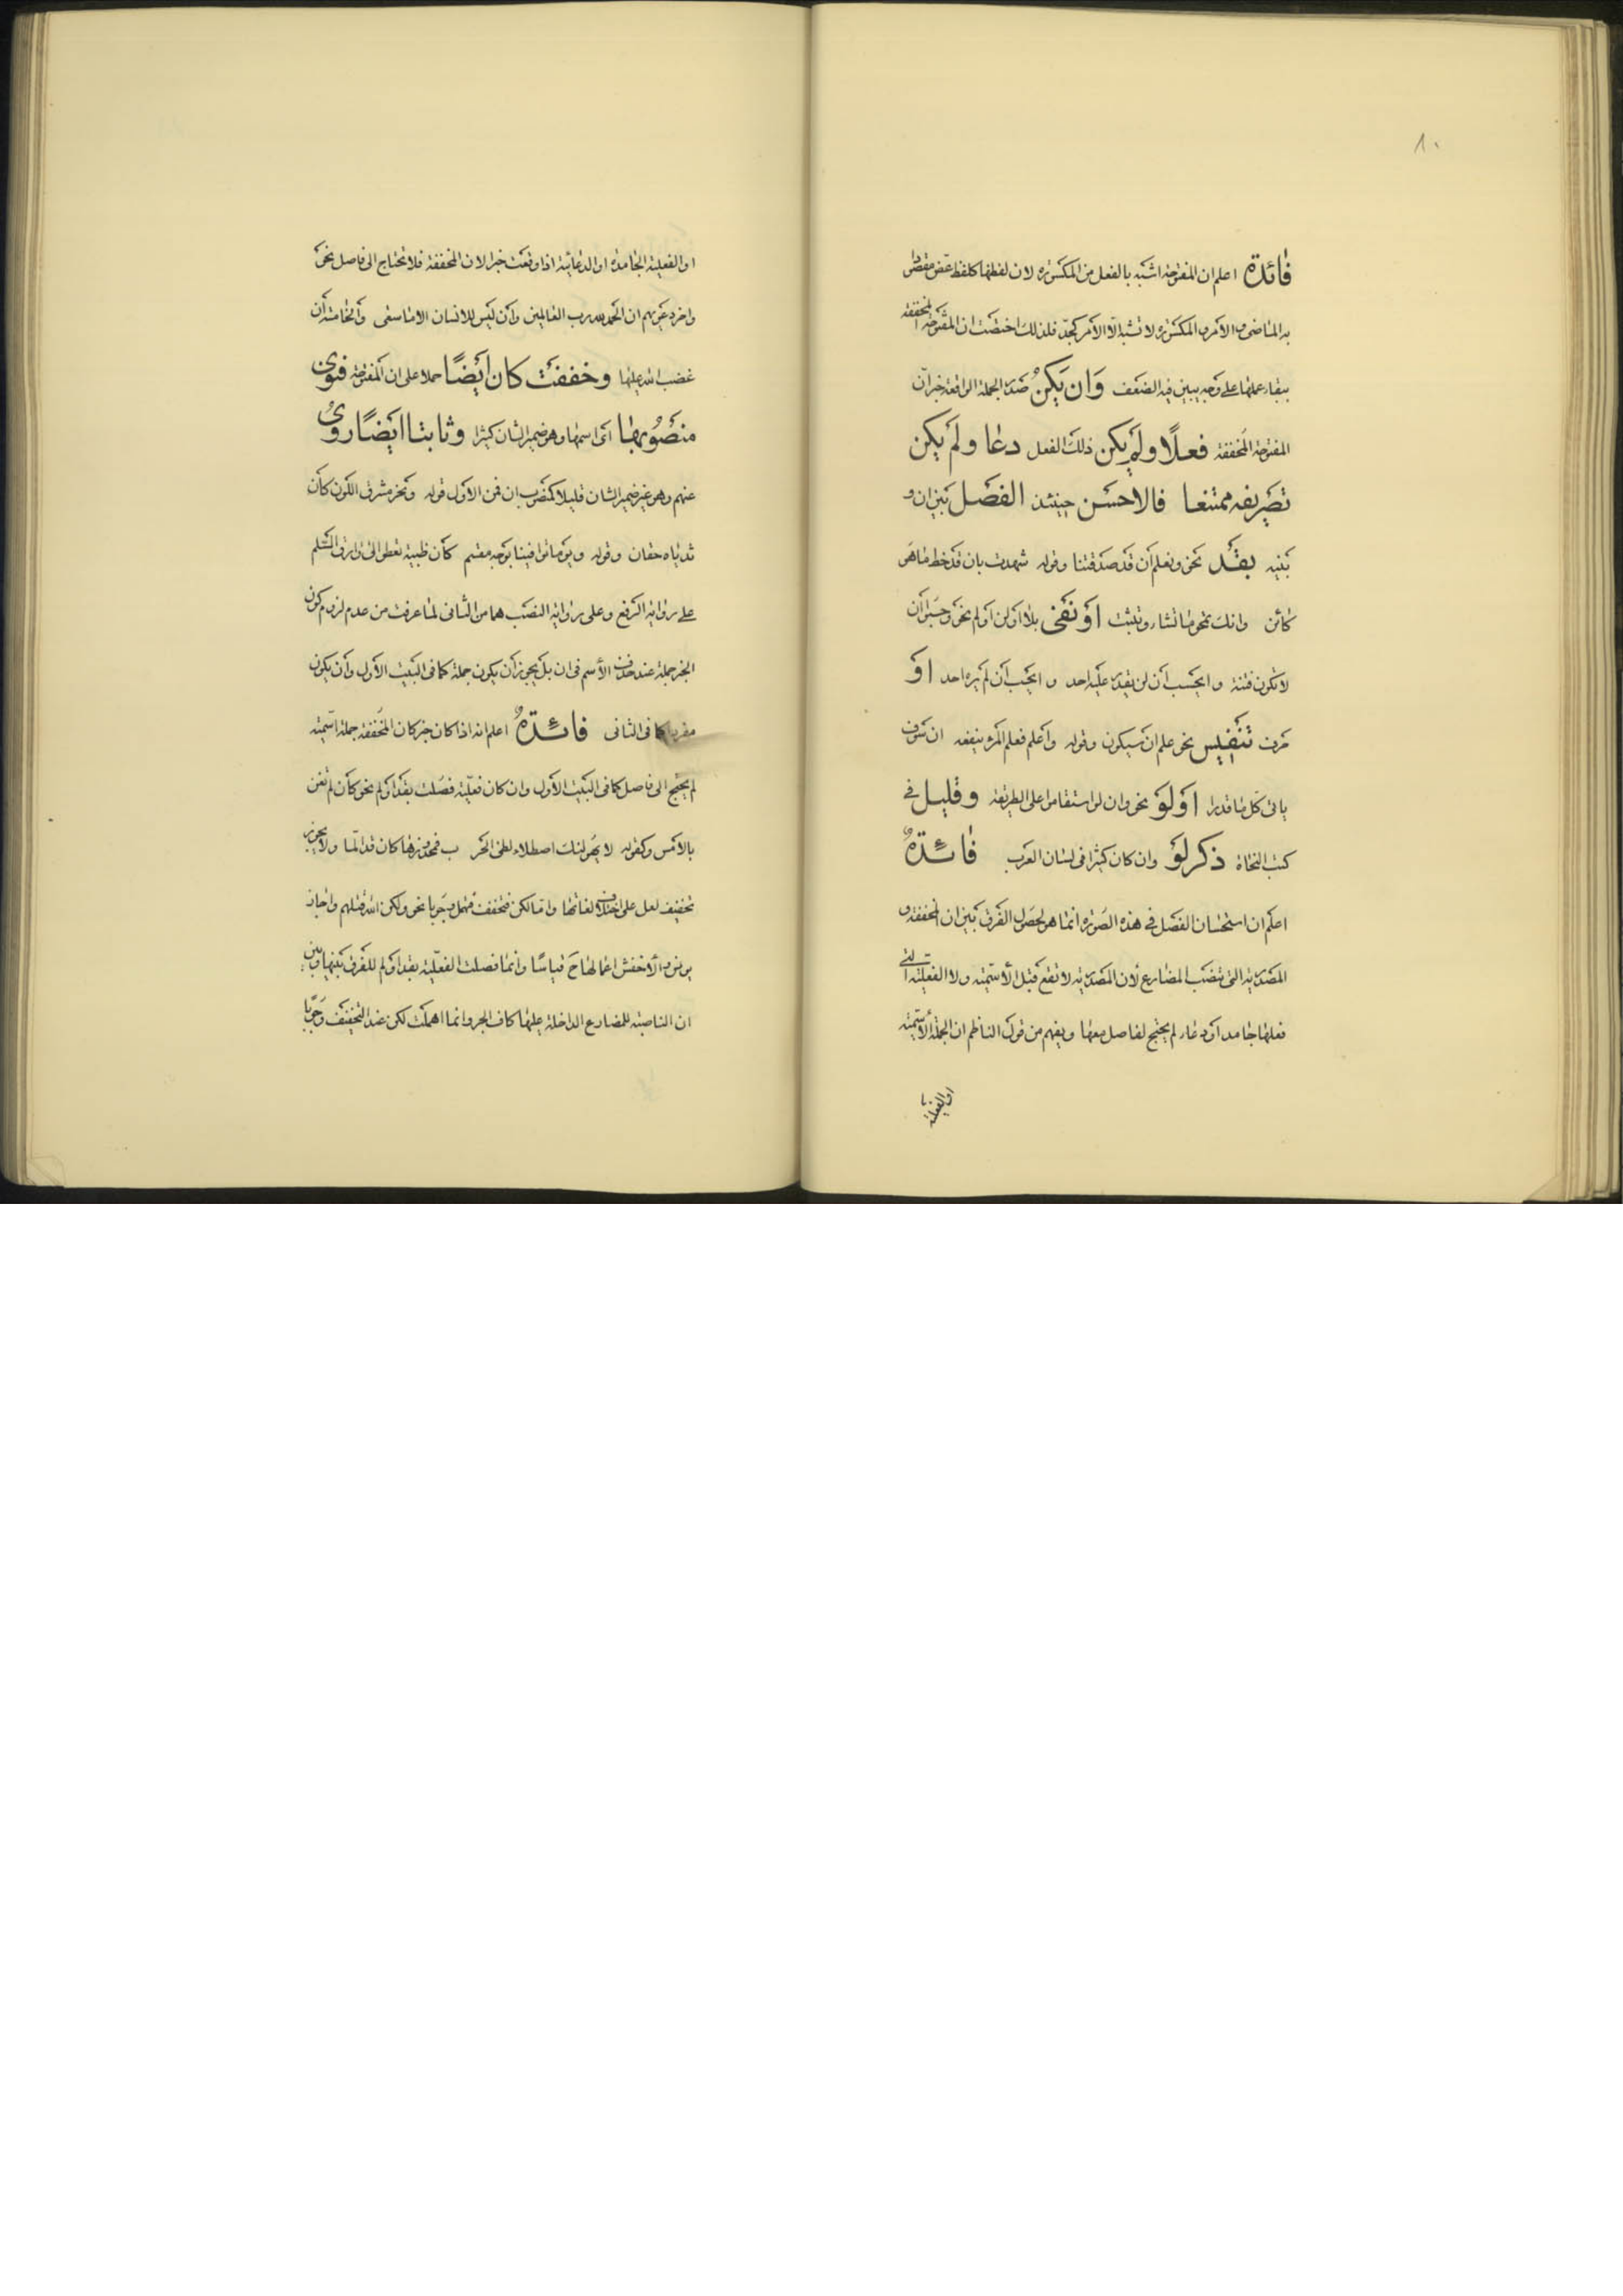 ٨٠
فائدة اعلم ان المفتوحة اشبه بالفعل من المكسورة لان لفظها كلفظ عض مقصدا
به الماضى والامر والمكسورة لا تشبه الا الامر كجد فلذلك اختصت ان المفتوحة المخففة
ببقاء عملها على وجه يبين فيه الضعف وان يكن صدر الجملة الواقعة خبر ان
المفتوحة المخففة فعلا ولم يكن ذلك الفعل دعا ولم يكن
تصريفه ممتنعا فالاحسن حينئذ الفصل بين ان و
بينه بقد نحو ونعلم أن قد صدقتنا وقوله شهدت بان قد خط ما هو
كائن وانك تمحو ما تشاء وتثبت او نفى بلا او لن او لم نحو وحسبوا أن
لا تكون فتنة و ايحسب أن لن يقدر عليه احد و ايحسب أن لم يره احد او
حرف تنفيس نحو علم ان سيكون وقوله واعلم فعلم المرء ينفعه ان سوف
ياتى كل ما قدرا او لو نحو وان لو استقاموا على الطريقة وقليل فى
كتب النحاة ذكر لو وان كان كثيرا فى لسان العرب فائدة
اعلم ان استحسان الفصل فى هذه الصورة انما هو لحصول الفرق بين ان المخففة و
المصدرية التى تنصب المضارع لان المصدرية لا تقع قبل الاسمية ولا الفعلية التى
فعلها جامد او دعاء لم يحتج لفاصل معها ويفهم من قول الناظم ان الجملة الاسمية
او الفعلية
او الفعلية الجامدة او الدعائية اذا وقعت خبرا لان المخففة فلا تحتاج الى فاصل نحو
واخر دعويهم ان الحمد لله رب العالمين وأن ليس للانسان الا ما سعى والخامسة أن
غضب الله عليها وخففت كان ايضا حملا على ان المفتوحة فنوى
منصوبها اى اسمها وهو ضمير الشان كثيرا وثابتا ايضا روى
عنهم وهو غير ضمير الشان قليلا كمنصوب ان فمن الاول قوله ونحر مشرق اللون كأن
ثدياه حقان وقوله ويوما توافينا بوجه مقسم كأن ظبية تعطو الى وارق السلم
على رواية الرفع وعلى رواية النصب هما من الثانى لما عرفت من عدم لزوم كون
الخبر جملة عند حذف الأسم فى ان بل يجوز أن يكون جملة كما فى البيت الاول وأن يكون
مفردا كما فى الثانى فائدة اعلم انه اذا كان خبر كان المخففة جملة اسمية
لم يحتج الى فاصل كما فى البيت الاول وان كان فعلية فصلت بقد او لم نحو كأن لم تغن
بالامس وكقوله لا يهولنك اصطلاء لظى الحر ب فمحذورها كان قد الما ولا يجوز
تخفيف لعل على اختلاف لغاتها واما لكن فتخفف فتهمل وجوبا نحو ولكن الله قتلهم واجاز
يونس والاخفش اعمالها ح قياسا وانما فصلت الفعلية بقد او لم للفرق بينها وبين
ان الناصبة للمضارع الداخلة عليها كاف الجر وانما اهملت لكن عند التخفيف وجوبا